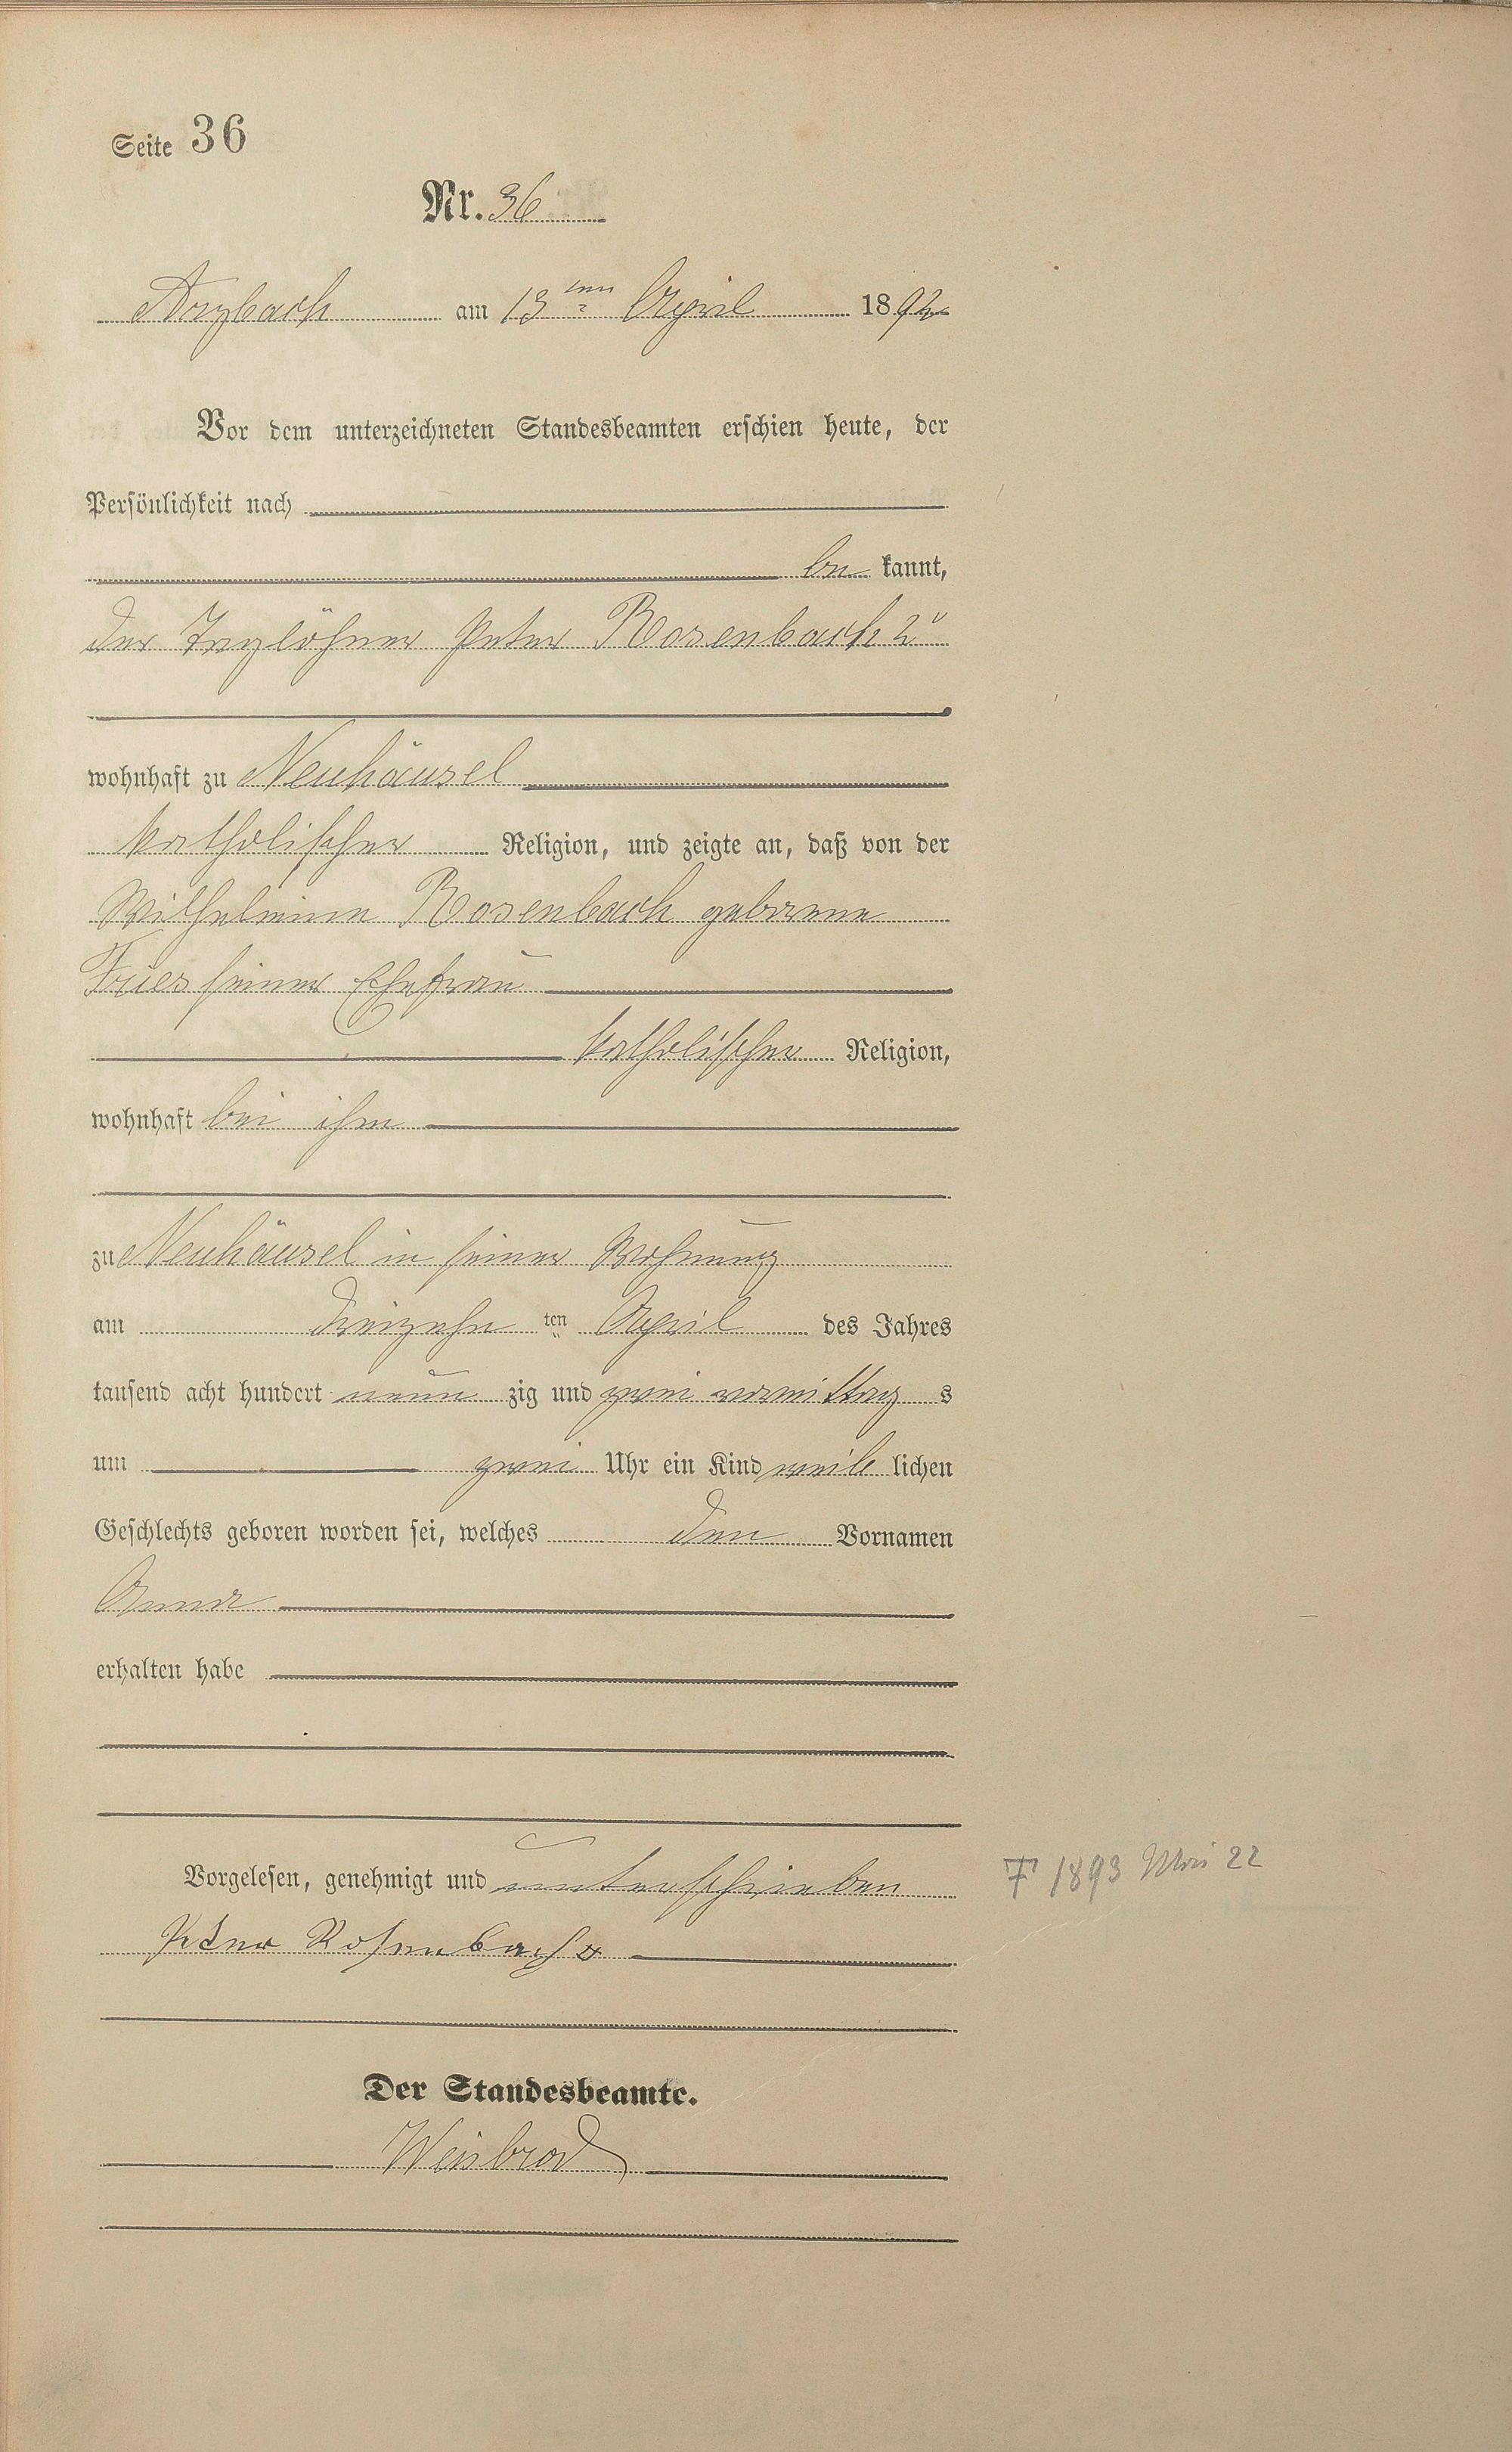 Seite 36
Nr. 36
Arzbach am 13ten April 1892
Vor dem unterzeichneten Standesbeamten erschien heute, der
Persönlichkeit nach
be kannt,
der Taglöhner Peter Rosenbach 2"
wohnhaft zu Neuhäusel
katholischer Religion, und zeigte an, daß von der
Wilhelmine Rosenbach geborene
Fries seiner Ehefrau
katholischer Religion,
wohnhaft bei ihm
zu Neuhäusel in seiner Wohnung
am dreizehn ten April des Jahres
tausend acht hundert neun zig und zwei vormittag s
um zwei Uhr ein Kind weib lichen
Geschlechts geboren worden sei, welches den Vornamen
Anna
erhalten habe
Vorgelesen, genehmigt und unterschrieben
† 1893 Mai 22
Peter Rosenbach
Der Standesbeamte.
Weisbrod